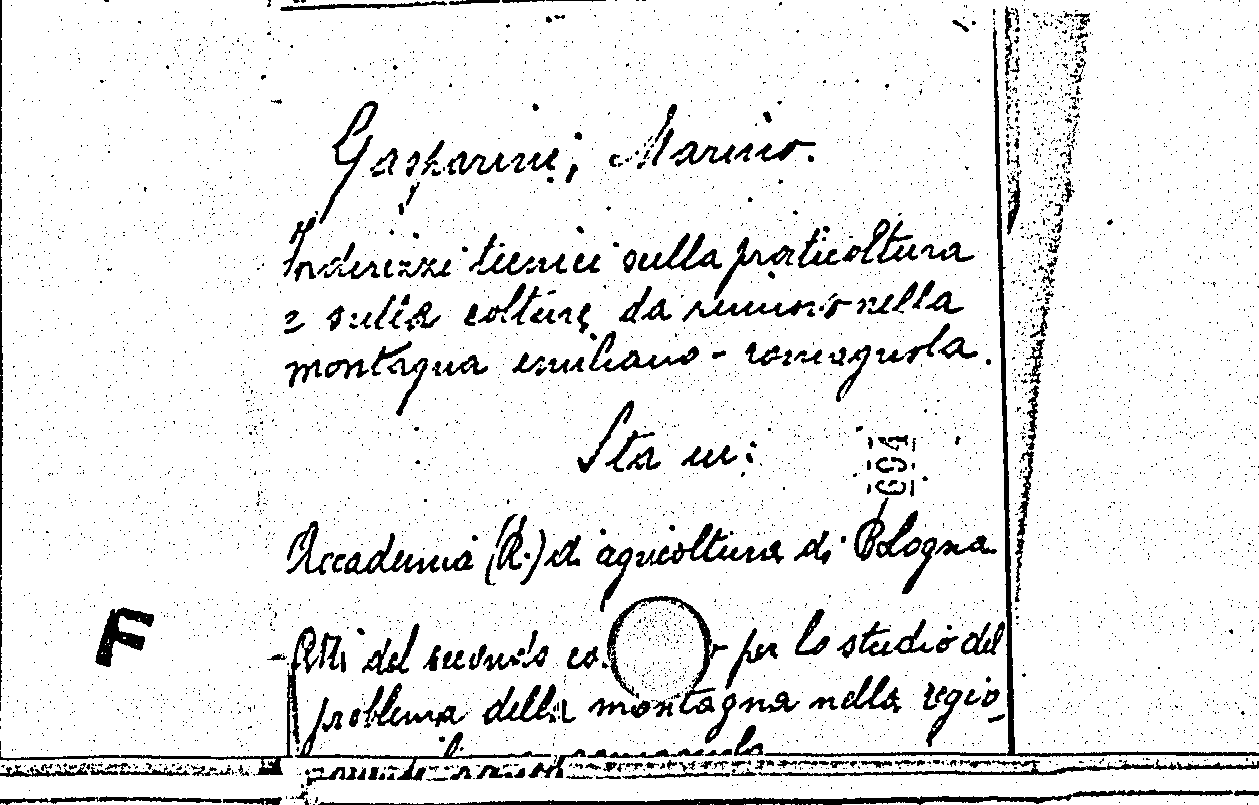 Gasparini, Marino.
Indirizzi tecnici sulla praticoltura
e sulle colture da rinnovo nella
montagna emiliano-romagnola.
Sta in:
694
Accademia (R.) di agricoltura di Bologna
Atti del secondo per lo studio del
F
problema della montagna nella regio_
romagnola